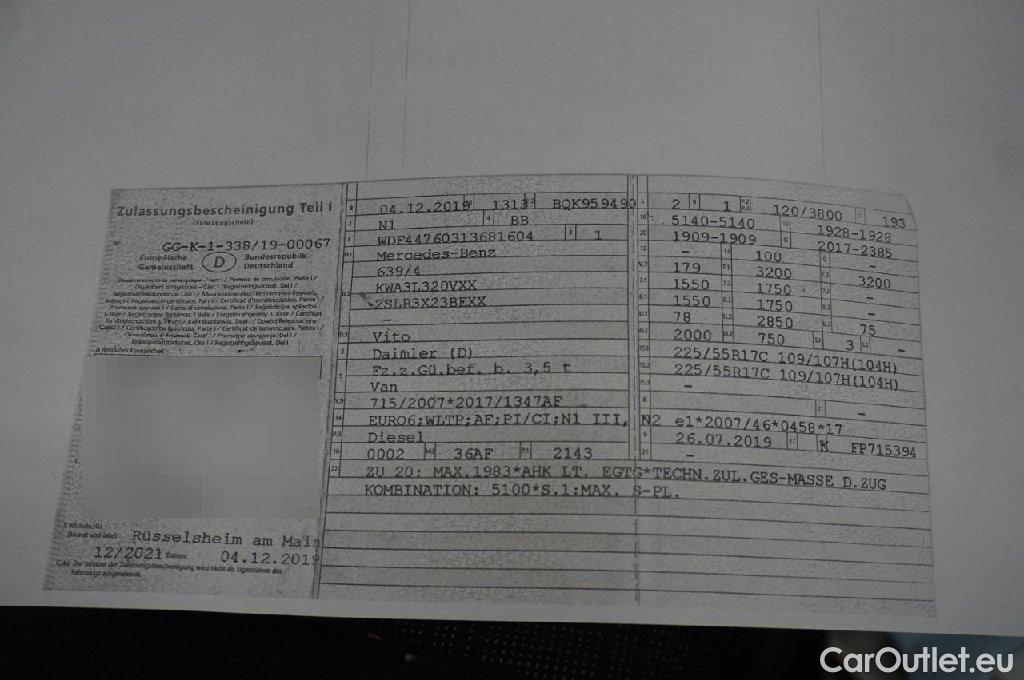 Zulassungsbescheinigung Teil I
(Fahrzeugschein)
Nr. GG-K-1-338/19-00067
Europäische Gemeinschaft D Bundesrepublik Deutschland
A Amtliches Kennzeichen
Rüsselsheim am Main
12/2021 Datum: 04.12.2019
C.4c Der Inhaber der Zulassungsbescheinigung wird nicht als Eigentümer des
Fahrzeugs ausgewiesen.
04.12.2019 1313 BQK959490
N1 BB
WDF44760313681604 1
Mercedes-Benz
639/4
KWA3L320VXX
2SLR3X23BEXX
–
Vito
Daimler (D)
Fz.z.Gü.bef. b. 3,5 t
Van
715/2007*2017/1347AF
EURO6;WLTP;AF;PI/CI;N1 III, N2
Diesel
0002 36AF 2143
2 1 120/3800 193
5140-5140 1928-1928
1909-1909 2017-2385
– 100 –
179 3200 3200
1550 1750 –
1550 1750 –
78 2850 75
2000 750 3 –
225/55R17C 109/107H(104H)
225/55R17C 109/107H(104H)
–
–
e1*2007/46*0458*17
26.07.2019 K FP715394
–
ZU 20: MAX.1983*AHK LT. EGTG*TECHN.ZUL.GES-MASSE D.ZUG
KOMBINATION: 5100*S.1:MAX. S-PL.
CarOutlet.eu